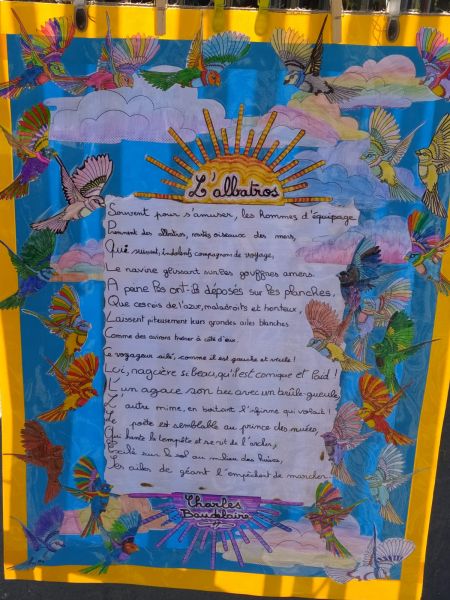 L'albatros
Souvent pour s'amuser, les hommes d'équipage
Prennent des albatros, vastes oiseaux des mers,
Qui suivent, indolents compagnons de voyage,
Le navire glissant sur les gouffres amers.
A peine les ont-ils déposés sur les planches,
Que ces rois de l'azur, maladroits et honteux,
Laissent piteusement leurs grandes ailes blanches
Comme des avirons traîner à côté d'eux.
Ce voyageur ailé, comme il est gauche et veule !
Lui, naguère si beau, qu'il est comique et laid !
L'un agace son bec avec un brûle-gueule,
L'autre mime, en boitant l'infirme qui volait !
Le poète est semblable au prince des nuées,
Qui hante la tempête et se rit de l'archer,
Exilé sur le sol au milieu des huées,
Ses ailes de géant l'empêchent de marcher.
Charles
Baudelaire